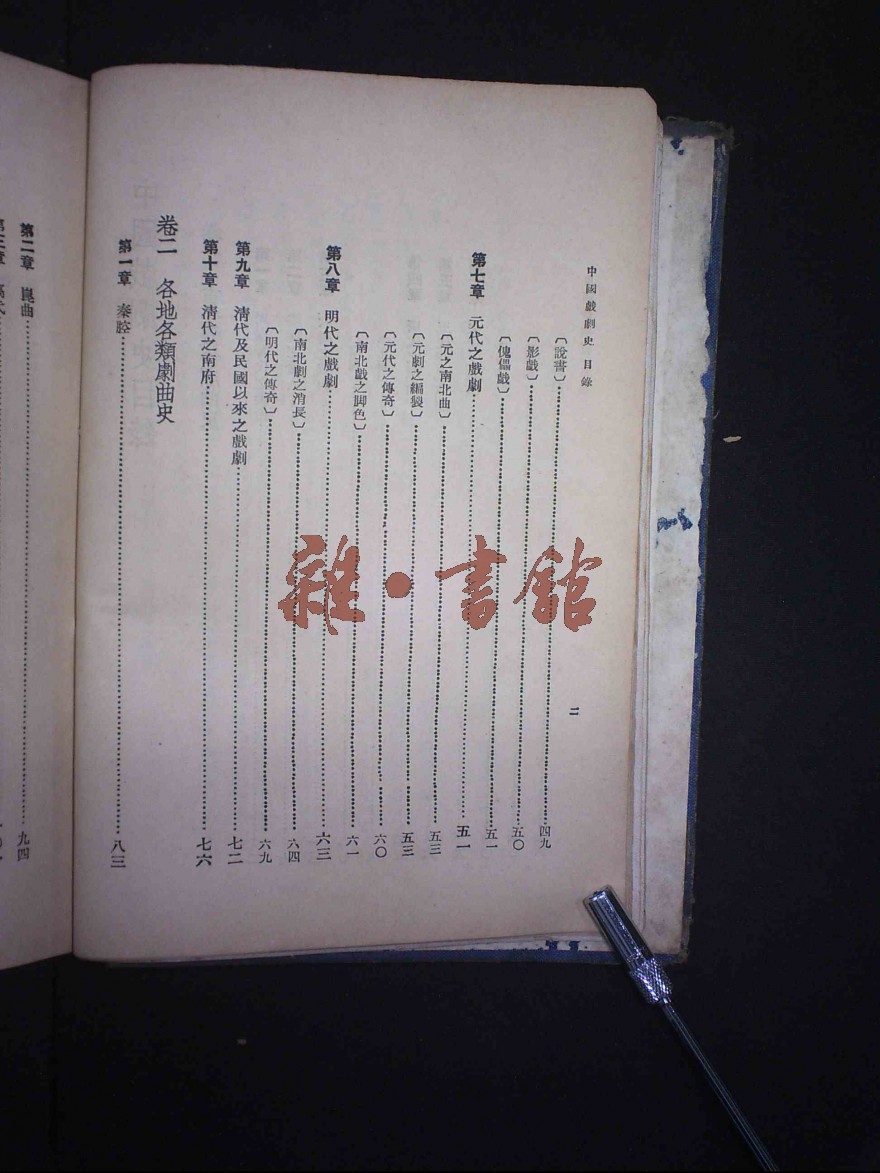 中國戲劇史 目錄
二
〔說書〕 四九
〔影戲〕 五〇
〔傀儡戲〕 五一
第七章 元代之戲劇 五一
〔元之南北曲〕 五三
〔元劇之編製〕 五三
〔元代之傳奇〕 六〇
〔南北戲之脚色〕 六一
第八章 明代之戲劇 六三
〔南北劇之消長〕 六四
〔明代之傳奇〕 六九
第九章 清代及民國以來之戲劇 七二
第十章 清代之南府 七六
卷二 各地各類劇曲史
第一章 秦腔 八三
第二章 崑曲 九四
第三章
雜·書館